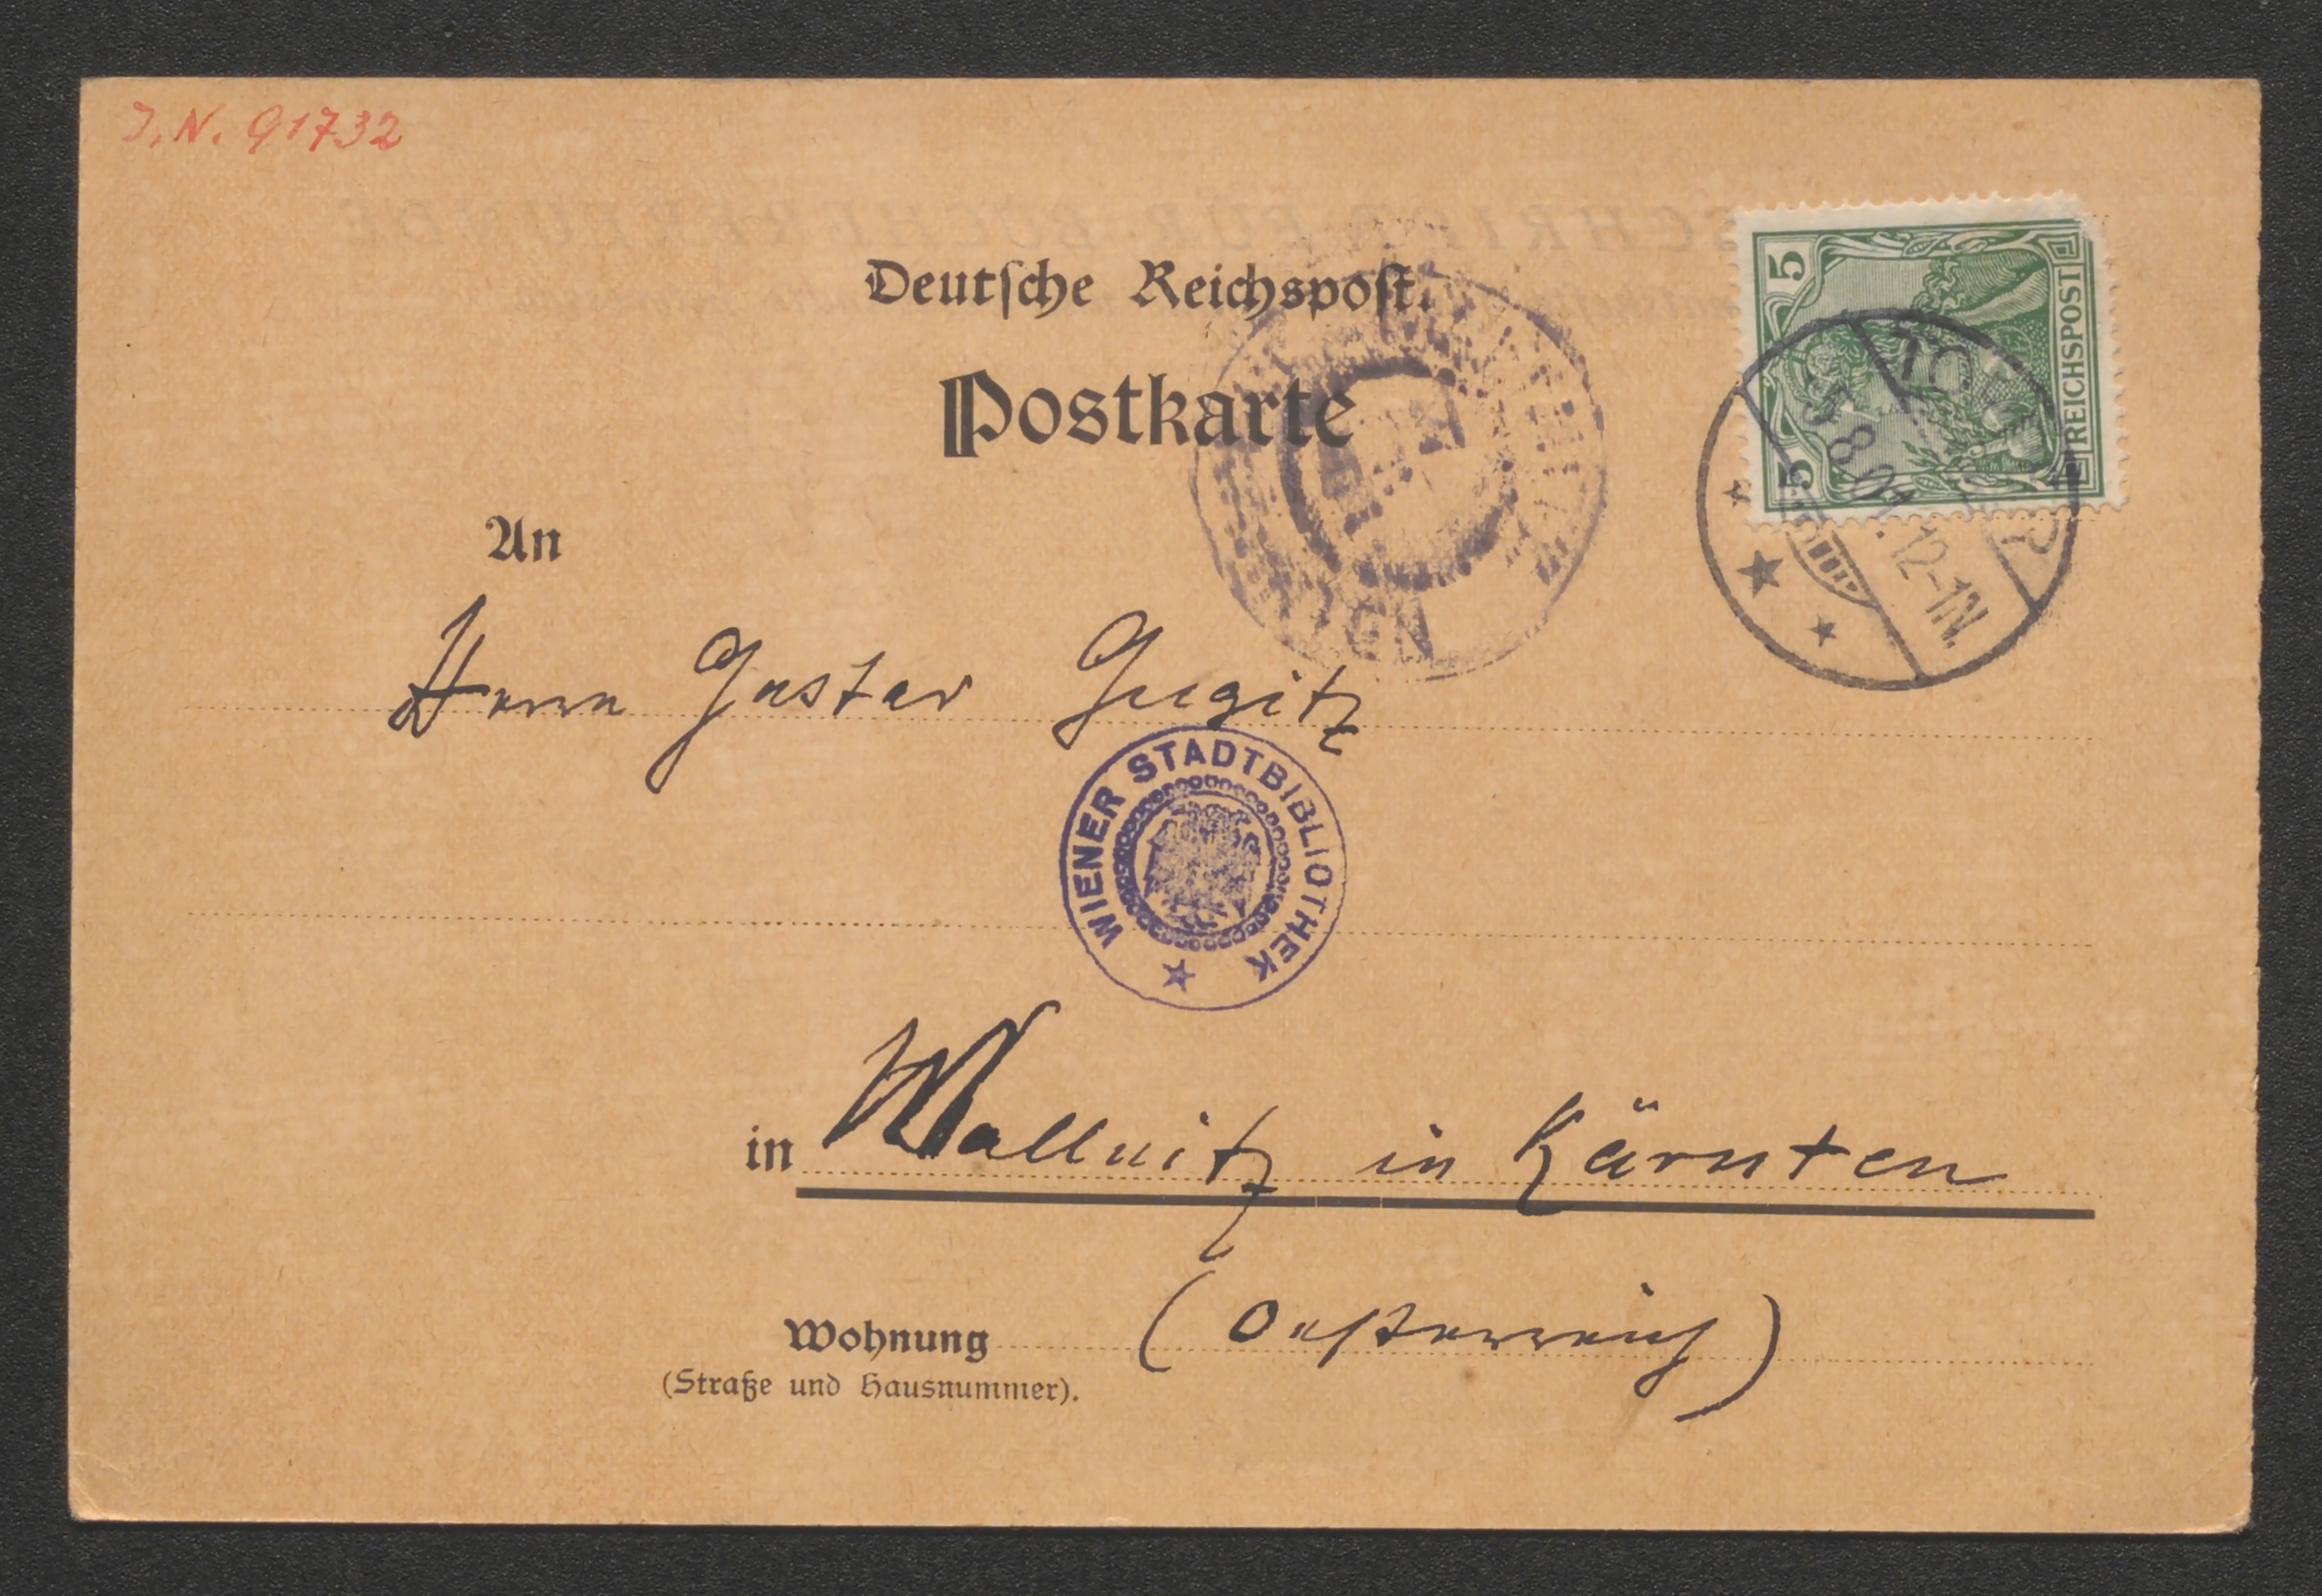 J.N. 91732
Deutsche Reichspost.
Postkarte
5
5
REICHSPOST
5.8.04.12-1N.
An
Herrn Gustav Gugitz
WIENER STADTBIBLIOTHEK
in Mallnitz in Kärnten
Wohnung (Oesterreich)
(Straße und Hausnummer).